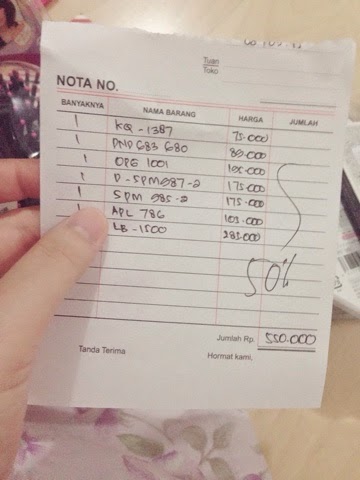 Tuan
Toko
NOTA NO.
BANYAKNYA NAMA BARANG HARGA JUMLAH
1 KQ - 1387 75.000
1 PND 683 680
1 OPG 1001
1 D - SPM987-2 175.000
1 SPM 985-2 175.000
1 APL 786 105.000
LB - 1500 285.000
50%
Jumlah Rp. 550.000
Tanda Terima Hormat kami,